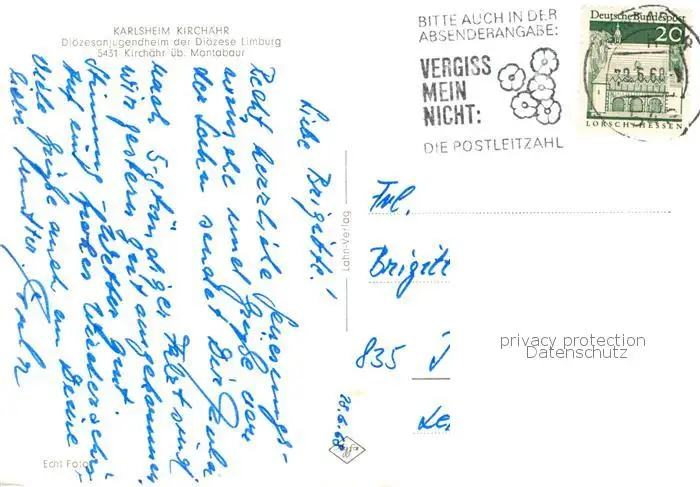 KARLSHEIM KIRCHÄHR
Diözesanjugendheim der Diözese Limburg
5431 Kirchähr üb. Montabaur
BITTE AUCH IN DER
ABSENDERANGABE:
VERGISS
MEIN
NICHT:
DIE POSTLEITZAHL
Deutsche Bundespost
20
LORSCH/HESSEN
Liebe Brigitte!
Recht herzliche
und Grüße von
der Lahn sendet Dir
nach 5-stündiger Fahrt sind
wir gestern gut angekommen
Stimmung + Wetter gut.
Auf ein frohes Wiedersehn
Viele Grüße auch an Deine
liebe Mutter.
28.6.68
Lahn-Verlag
Frl.
Brigitt
835
Echt Foto
privacy protection
Datenschutz